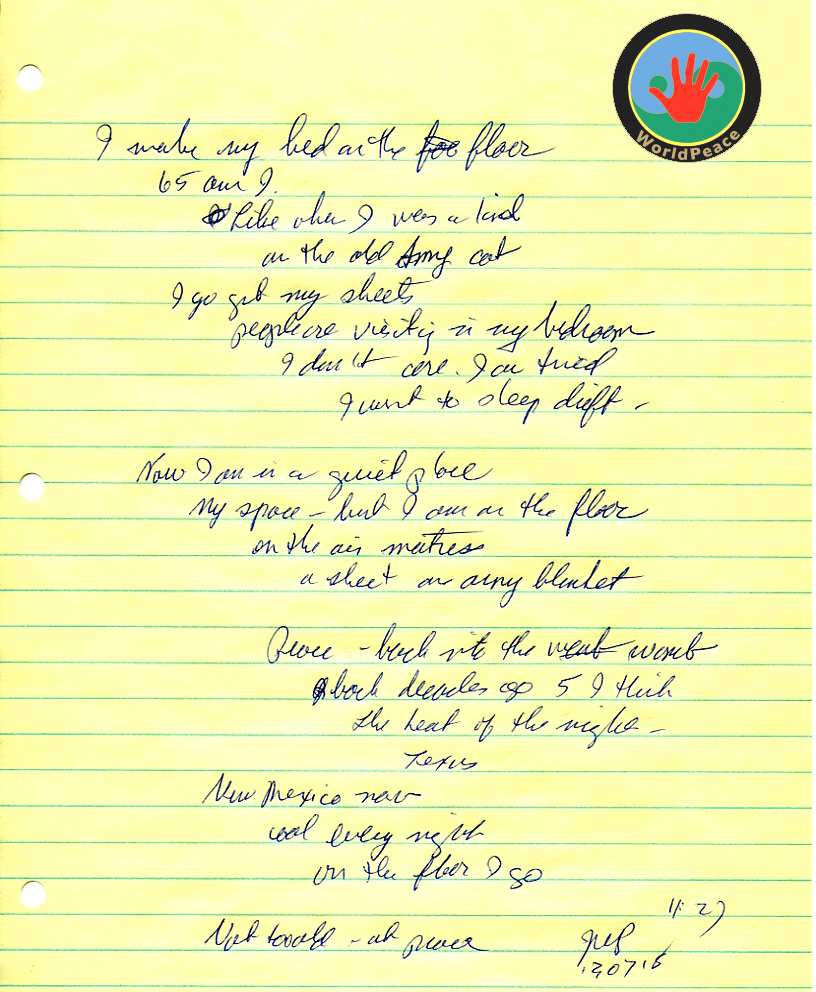 WorldPeace
I make my bed on the floor
65 am I.
Like when I was a kid
on the old Army cot
I go get my sheets
people are visiting in my bedroom
I don't care. I am tired
I want to sleep drift -
Now I am in a quiet place
My space - but I am on the floor
on the air matress
a sheet an army blanket
Peace - back into the womb
back decades ago 5 I think
the heat of the night -
Texas
New Mexico now
cool every night
on the floor I go
Not - at peace
11:27
120715